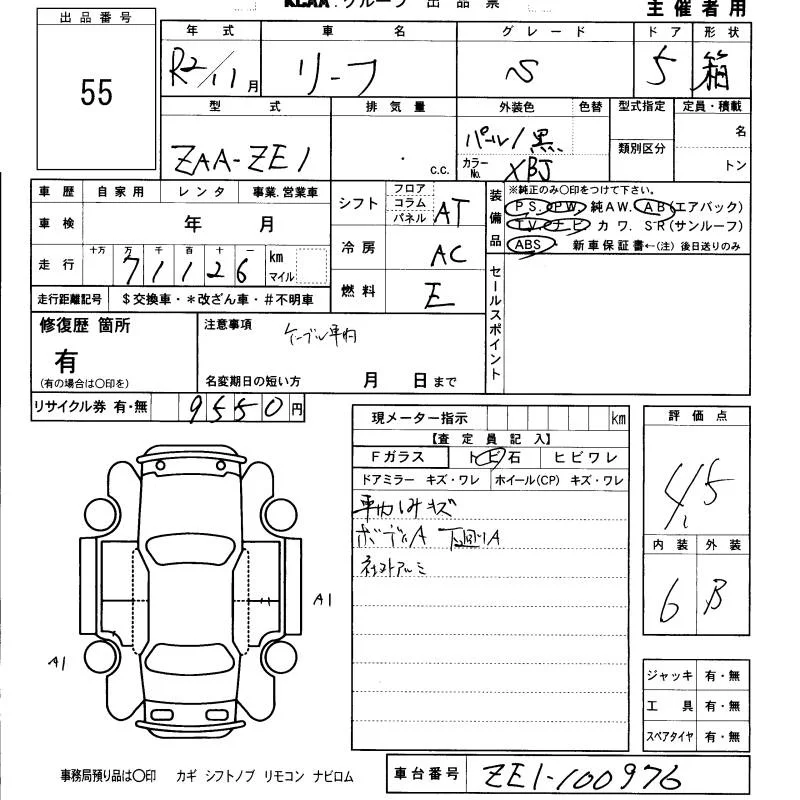 KCAA.グループ 出品票
主催者用
出品番号
55
年式 車名 グレード ドア 形状
R2/11月 リーフ S 5 箱
型式 排気量 外装色 色替 型式指定 定員・積載
ZAA-ZE1 . c.c. パール/黒 類別区分 名
カラーNo. XBJ トン
車歴 自家用 レンタ 事業.営業車
車検 年 月
走行 十万 万 千 百 十 一
71126 km マイル
走行距離記号 $交換車・*改ざん車・#不明車
シフト フロア コラム パネル AT
冷房 AC
燃料 E
装備品 ※純正のみ〇印をつけて下さい。
PS. PW. 純AW. AB(エアバック)
TV. ナビ カワ. SR(サンルーフ)
ABS・ 新車保証書←(注) 後日送りのみ
セールスポイント
修復歴 箇所
有
(有の場合は〇印を)
注意事項 ケーブル車内
名変期日の短い方 月 日まで
リサイクル券 有・無 9550円
現メーター指示 km
【査定員記入】
Fガラス トビ石 ヒビワレ
ドアミラー キズ・ワレ ホイール(CP) キズ・ワレ
ボディA 下回りA
社外アルミ
評価点
4.5
内装 外装
6 B
A1
A1
ジャッキ 有・無
工具 有・無
スペアタイヤ 有・無
事務局預り品は〇印 カギ シフトノブ リモコン ナビロム
車台番号 ZE1-100976